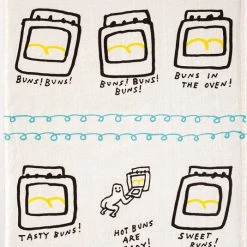 BUNS! BUNS!
BUNS! BUNS!
BUNS!
BUNS IN
THE OVEN!
TASTY BUNS!
HOT BUNS
ARE
READY!
SWEET
BUNS!